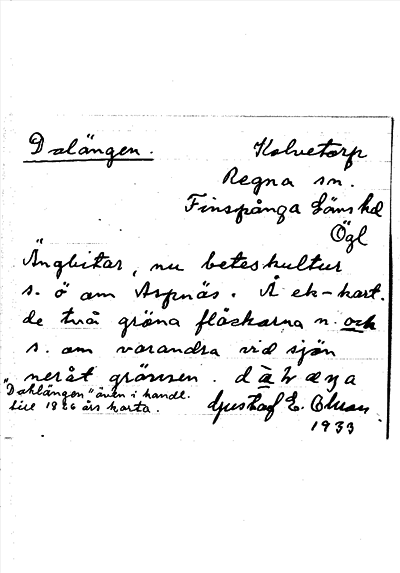 Dalängen.
Kolvetorp
Regna sn.
Finspånga läns hd
Ögl
Ängbitar, nu beteskultur
s. ö om Aspnäs. Å ek-kart.
de två gröna fläckarna n. och
s. om varandra vid sjön
neråt gränsen.
"Dahlängen" även i handl.
till 1826 års karta.
Gustaf E.
1933